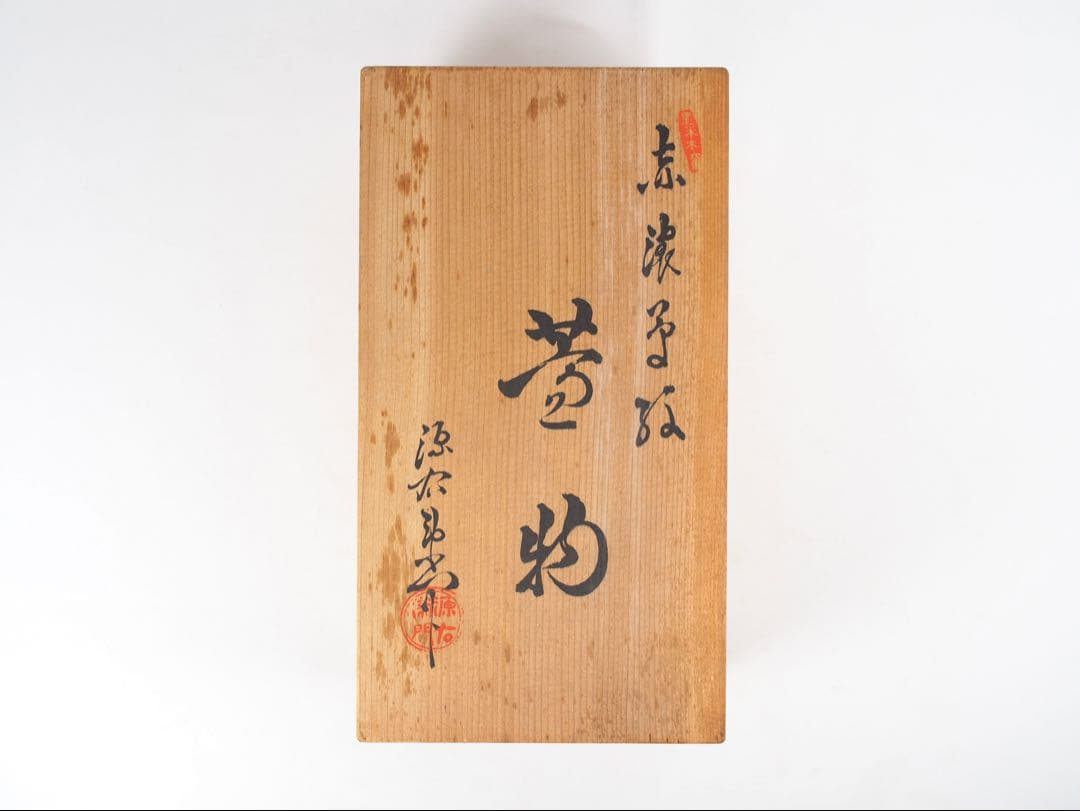 赤濃草紋
蓋物
源右衛門
源右衛門